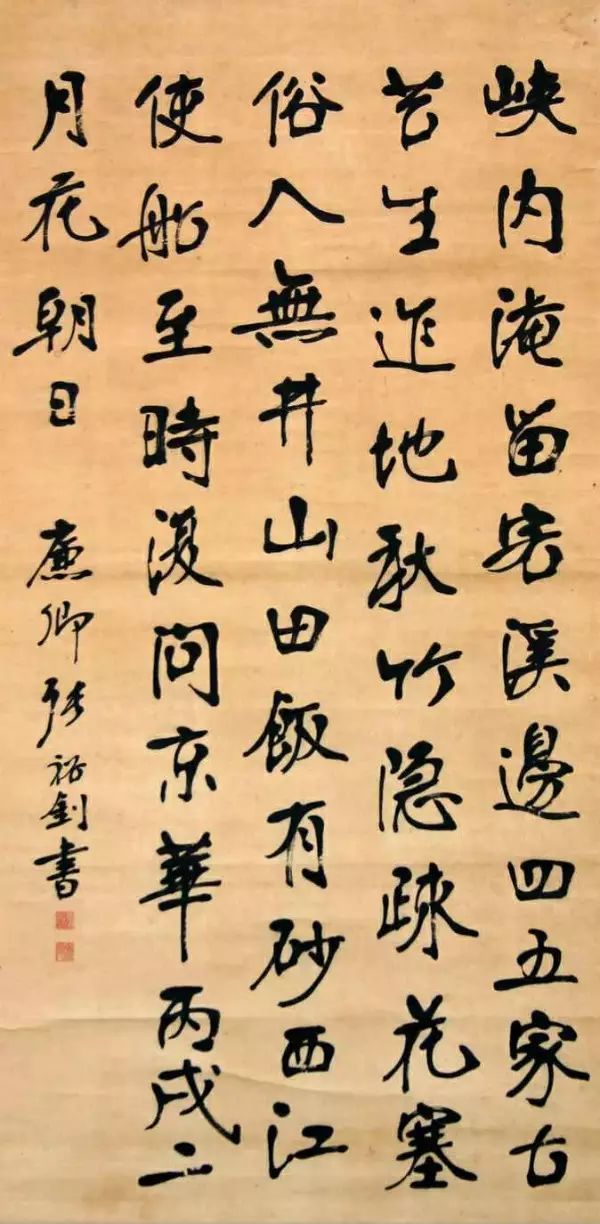 峽内淹留客溪邊四五家古
苔生迮地秋竹隐疎花塞
俗人無井山田飯有砂西江
使船至時復問京華丙戌二
月花朝日 廉卿張裕釗書